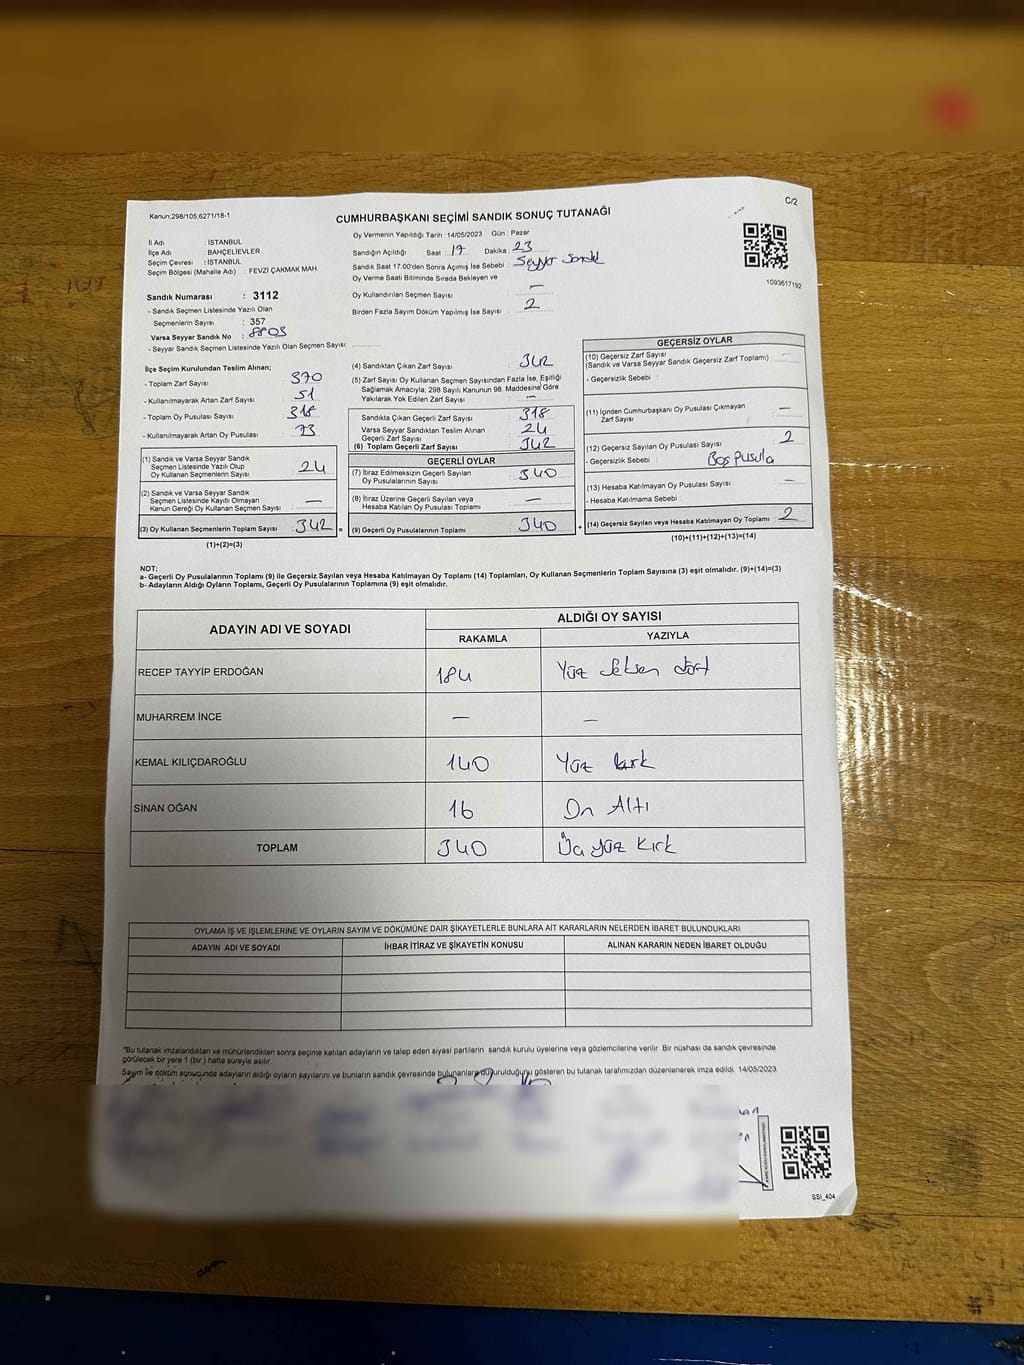 Kanun:298/105;6271/18-1
C/2
CUMHURBAŞKANI SEÇİMİ SANDIK SONUÇ TUTANAĞI
1093617192
İl Adı : İSTANBUL
İlçe Adı : BAHÇELİEVLER
Seçim Çevresi : İSTANBUL
Seçim Bölgesi (Mahalle Adı) : FEVZİ ÇAKMAK MAH.
Sandık Numarası : 3112
- Sandık Seçmen Listesinde Yazılı Olan
Seçmenlerin Sayısı : 357
Varsa Seyyar Sandık No : 8803
- Seyyar Sandık Seçmen Listesinde Yazılı Olan Seçmen Sayısı:
Oy Vermenin Yapıldığı Tarih : 14/05/2023 Gün : Pazar
Sandığın Açıldığı Saat : 17 Dakika : 23
Sandık Saat 17:00'den Sonra Açımış İse Sebebi : Seyyar Sandık
Oy Verme Saati Bitiminde Sırada Bekleyen ve
Oy Kullandırılan Seçmen Sayısı : —
Birden Fazla Sayım Döküm Yapılmış İse Sayısı : 2
İlçe Seçim Kurulundan Teslim Alınan;
- Toplam Zarf Sayısı : 370
- Kullanılmayarak Artan Zarf Sayısı : 51
- Toplam Oy Pusulası Sayısı : 318
- Kullanılmayarak Artan Oy Pusulası : 73
(1) Sandık ve Varsa Seyyar Sandık
Seçmen Listesinde Yazılı Olup
Oy Kullanan Seçmenlerin Sayısı : 24
(2) Sandık ve Varsa Seyyar Sandık
Seçmen Listesinde Kayıtlı Olmayan
Kanun Gereği Oy Kullanan Seçmen Sayısı : —
(3) Oy Kullanan Seçmenlerin Toplam Sayısı : 342 =
(1)+(2)=(3)
(4) Sandıktan Çıkan Zarf Sayısı : 342
(5) Zarf Sayısı Oy Kullanan Seçmen Sayısından Fazla İse, Eşitliği
Sağlamak Amacıyla, 298 Sayılı Kanunun 98. Maddesine Göre
Yakılarak Yok Edilen Zarf Sayısı : —
Sandıkta Çıkan Geçerli Zarf Sayısı : 318
Varsa Seyyar Sandıktan Teslim Alınan
Geçerli Zarf Sayısı : 24
(6) Toplam Geçerli Zarf Sayısı : 342
GEÇERLİ OYLAR
(7) İtiraz Edilmeksizin Geçerli Sayılan
Oy Pusulalarının Sayısı : 340
(8) İtiraz Üzerine Geçerli Sayılan veya
Hesaba Katılan Oy Pusulası Toplamı : —
(9) Geçerli Oy Pusulalarının Toplamı : 340 +
GEÇERSİZ OYLAR
(10) Geçersiz Zarf Sayısı
(Sandık ve Varsa Seyyar Sandık Geçersiz Zarf Toplamı) : —
- Geçersizlik Sebebi :
(11) İçinden Cumhurbaşkanı Oy Pusulası Çıkmayan
Zarf Sayısı : —
(12) Geçersiz Sayılan Oy Pusulası Sayısı : 2
- Geçersizlik Sebebi : Boş pusula
(13) Hesaba Katılmayan Oy Pusulası Sayısı : —
- Hesaba Katılmama Sebebi :
(14) Geçersiz Sayılan veya Hesaba Katılmayan Oy Toplamı : 2
(10)+(11)+(12)+(13)=(14)
NOT:
a- Geçerli Oy Pusulalarının Toplamı (9) ile Geçersiz Sayılan veya Hesaba Katılmayan Oy Toplamı (14) Toplamları, Oy Kullanan Seçmenlerin Toplam Sayısına (3) eşit olmalıdır. (9)+(14)=(3)
b- Adayların Aldığı Oyların Toplamı, Geçerli Oy Pusulalarının Toplamına (9) eşit olmalıdır.
ADAYIN ADI VE SOYADI
ALDIĞI OY SAYISI
RAKAMLA YAZIYLA
RECEP TAYYİP ERDOĞAN 184 Yüz Seksen dört
MUHARREM İNCE — —
KEMAL KILIÇDAROĞLU 140 Yüz kırk
SİNAN OĞAN 16 On Altı
TOPLAM 340 Üç yüz Kırk
OYLAMA İŞ VE İŞLEMLERİNE VE OYLARIN SAYIM VE DÖKÜMÜNE DAİR ŞİKAYETLERLE BUNLARA AİT KARARLARIN NELERDEN İBARET BULUNDUKLARI
ADAYIN ADI VE SOYADI İHBAR İTİRAZ VE ŞİKAYETİN KONUSU ALINAN KARARIN NEDEN İBARET OLDUĞU
*Bu tutanak imzalandıktan ve mühürlendikten sonra seçime katılan adayların ve talep eden siyasi partilerin sandık kurulu üyelerine veya gözlemcilerine verilir. Bir nüshası da sandık çevresinde
görülecek bir yere 1 (bir ) hafta süreyle asılır.
Sayım ve döküm sonucunda adayların aldığı oyların sayılarını ve bunların sandık çevresinde bulunanlara duyurulduğunu gösteren bu tutanak tarafımızdan düzenlenerek imza edildi. 14/05/2023
SSİ_404